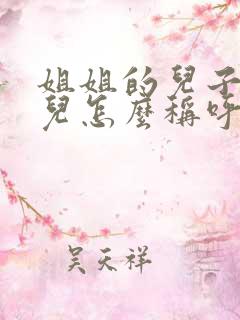 姐姐的兒子
兒怎麼稱呼
吳天祥